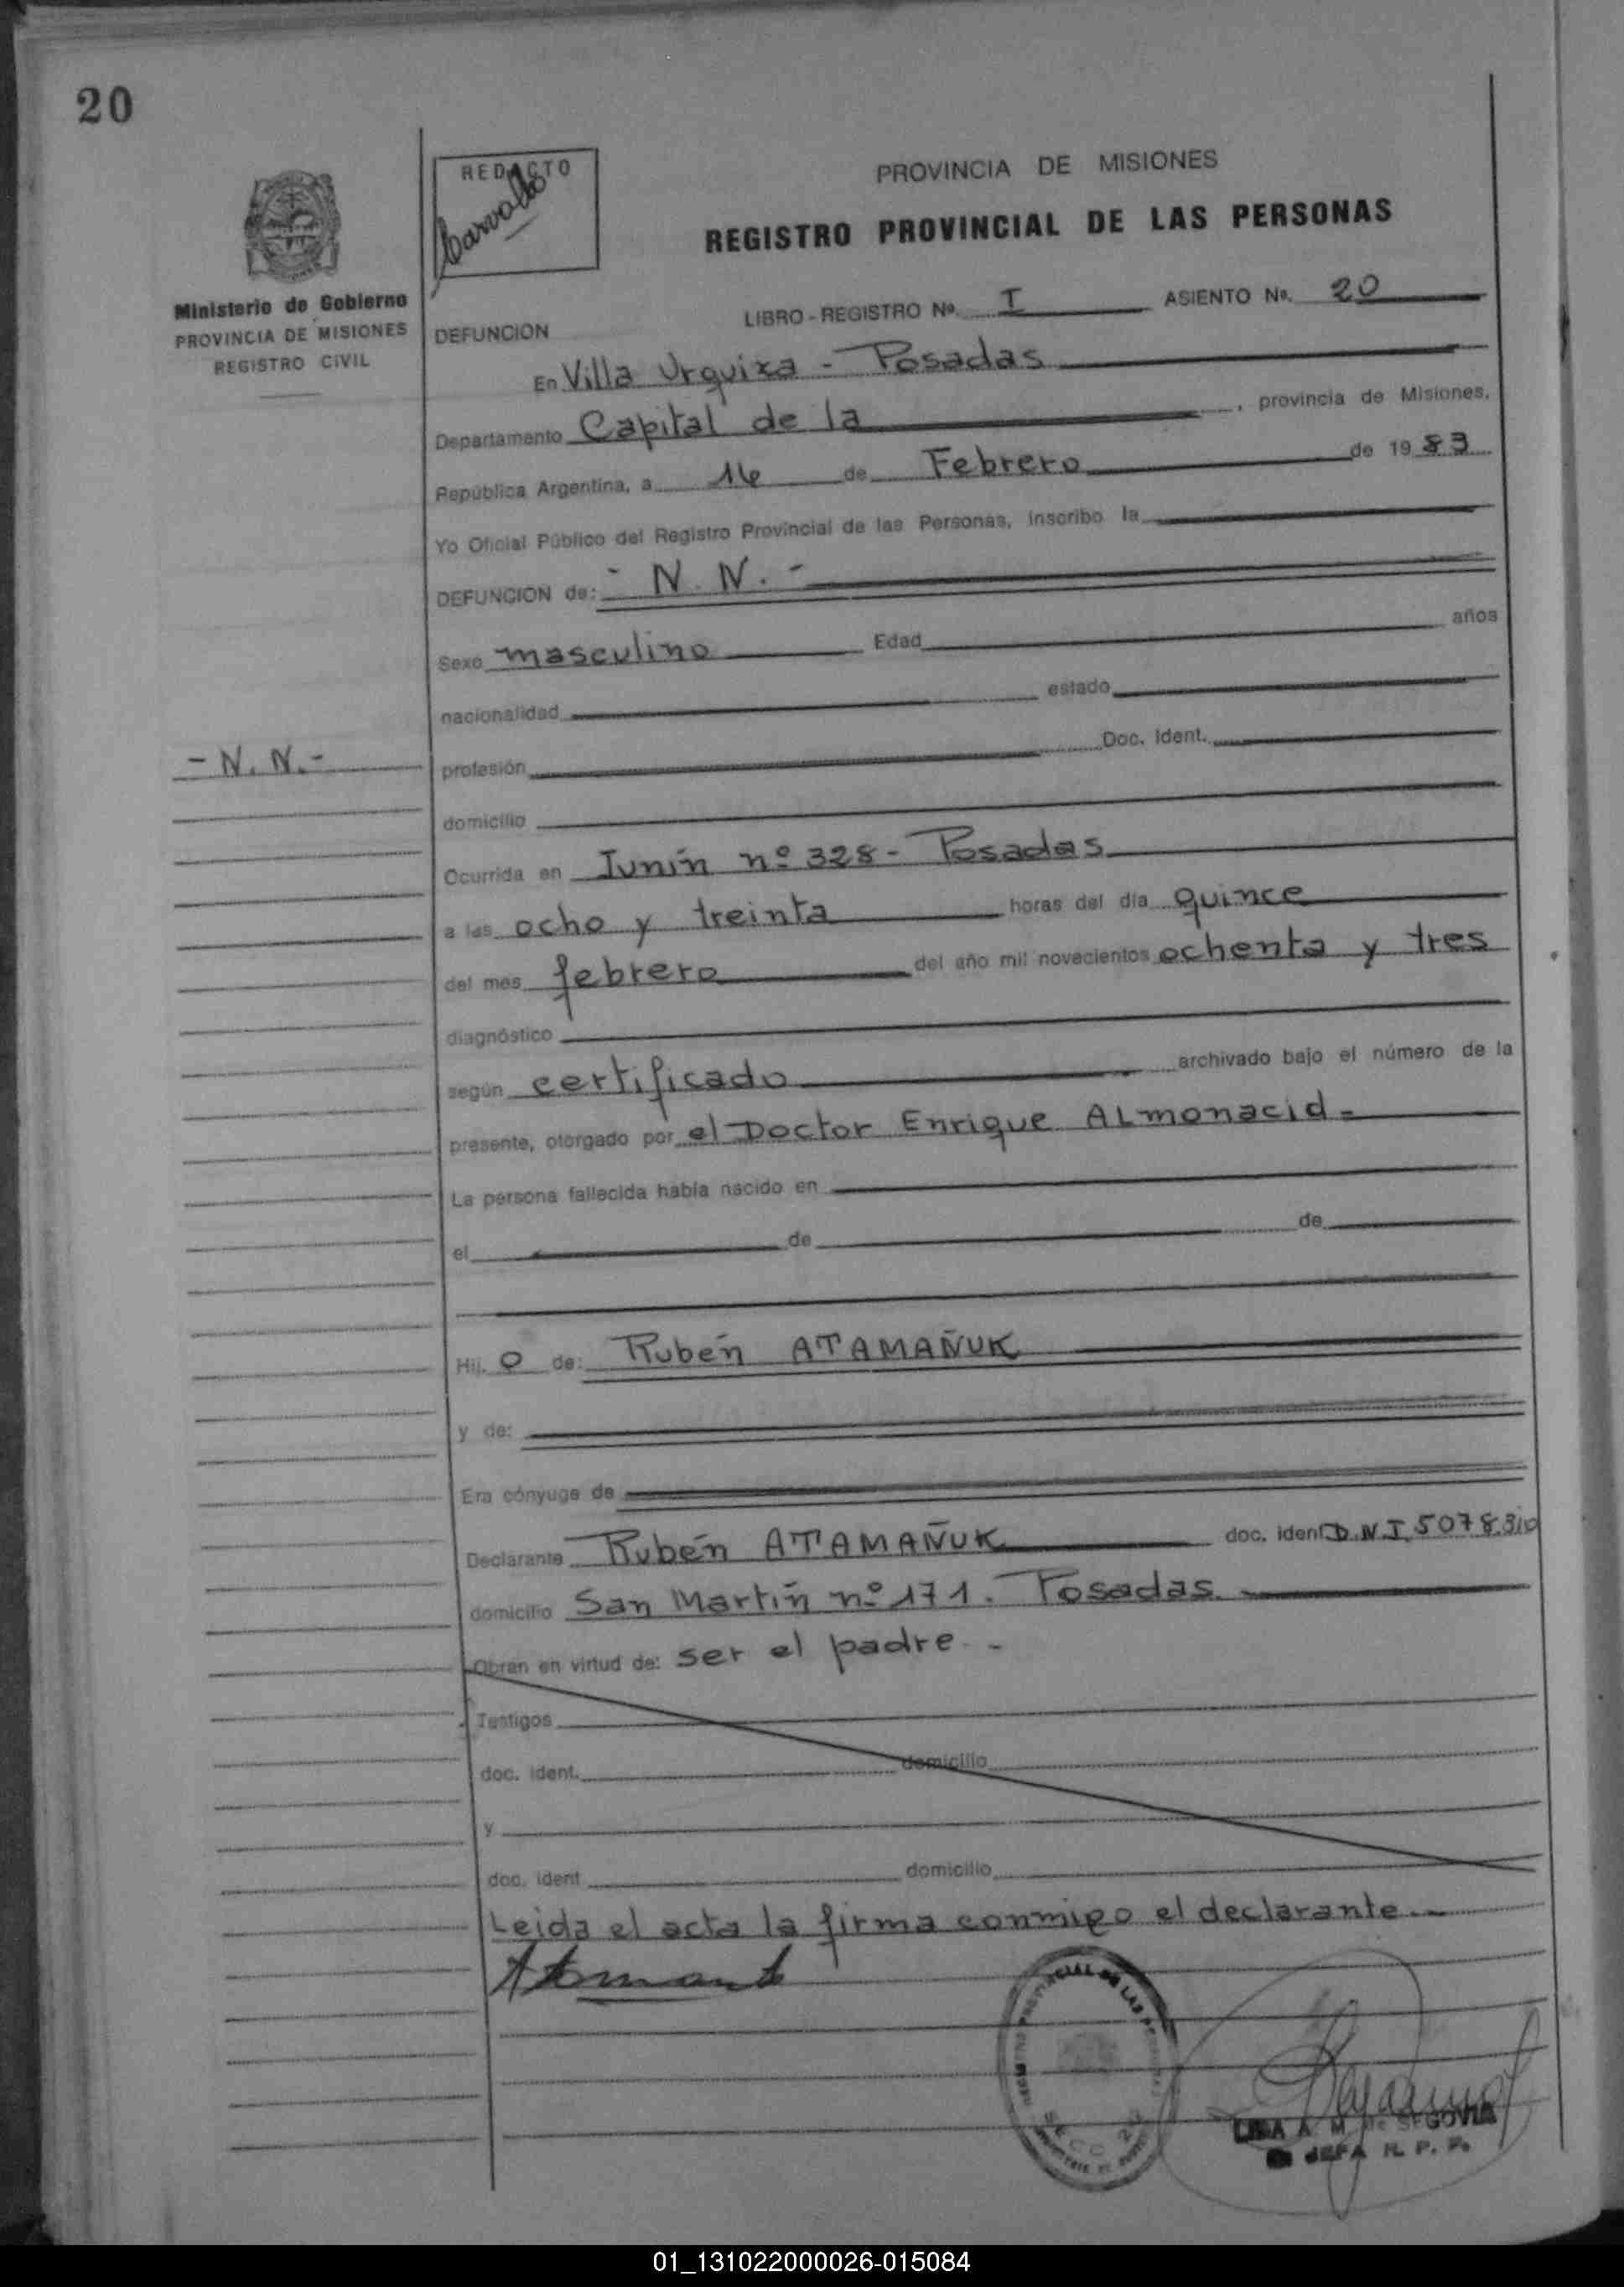 20
REDACTO
Carvallo
PROVINCIA DE MISIONES
REGISTRO PROVINCIAL DE LAS PERSONAS
Ministerio de Gobierno
PROVINCIA DE MISIONES
REGISTRO CIVIL
LIBRO - REGISTRO Nº. I ASIENTO Nº. 20
DEFUNCION
En Villa Urquiza - Posadas
Departamento Capital de la , provincia de Misiones,
República Argentina, a 16 de Febrero de 1983
Yo Oficial Público del Registro Provincial de las Personas, inscribo la
DEFUNCION de: - N. N. -
Sexo masculino Edad años
nacionalidad estado
- N. N. -
profesión Doc. ident.
domicilio
Ocurrida en Junín nº 328 - Posadas
a las ocho y treinta horas del día quince
del mes febrero del año mil novecientos ochenta y tres
diagnóstico
según certificado archivado bajo el número de la
presente, otorgado por el Doctor Enrique ALmonacid -
La persona fallecida había nacido en
el de de
Hij. o de: Rubén ATAMAÑUK
y de:
Era cónyuge de
Declarante Rubén ATAMAÑUK doc. ident D.N.I. 5078310
domicilio San Martín nº 171. Posadas.
Obran en virtud de: ser el padre. -
Testigos
doc. ident. domicilio
y
doc. ident domicilio
Leida el acta la firma conmigo el declarante. -
A. M. de SEGOVIA
JEFA R. P. P.
01_131022000026-015084